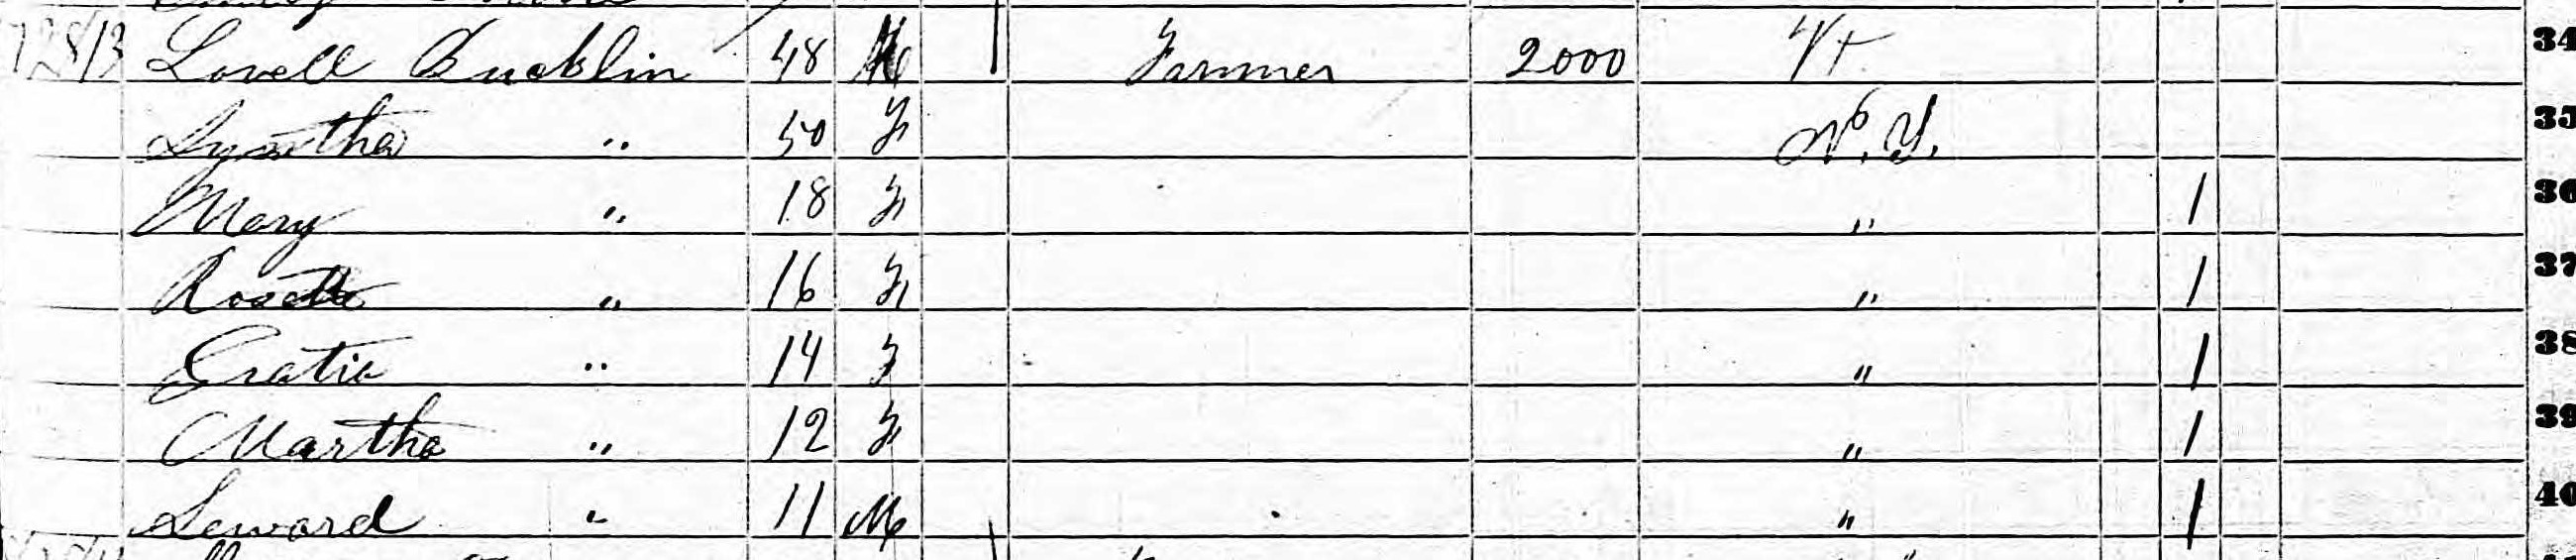 Lovell Bucklin 48 M Farmer 2000 Vt. 34
Syntha " 50 F N.Y. 35
Mary " 18 F " 1 36
Rosetta " 16 F " 1 37
Gratia " 14 F " 1 38
Martha " 12 F " 1 39
Seward " 11 M " 1 40